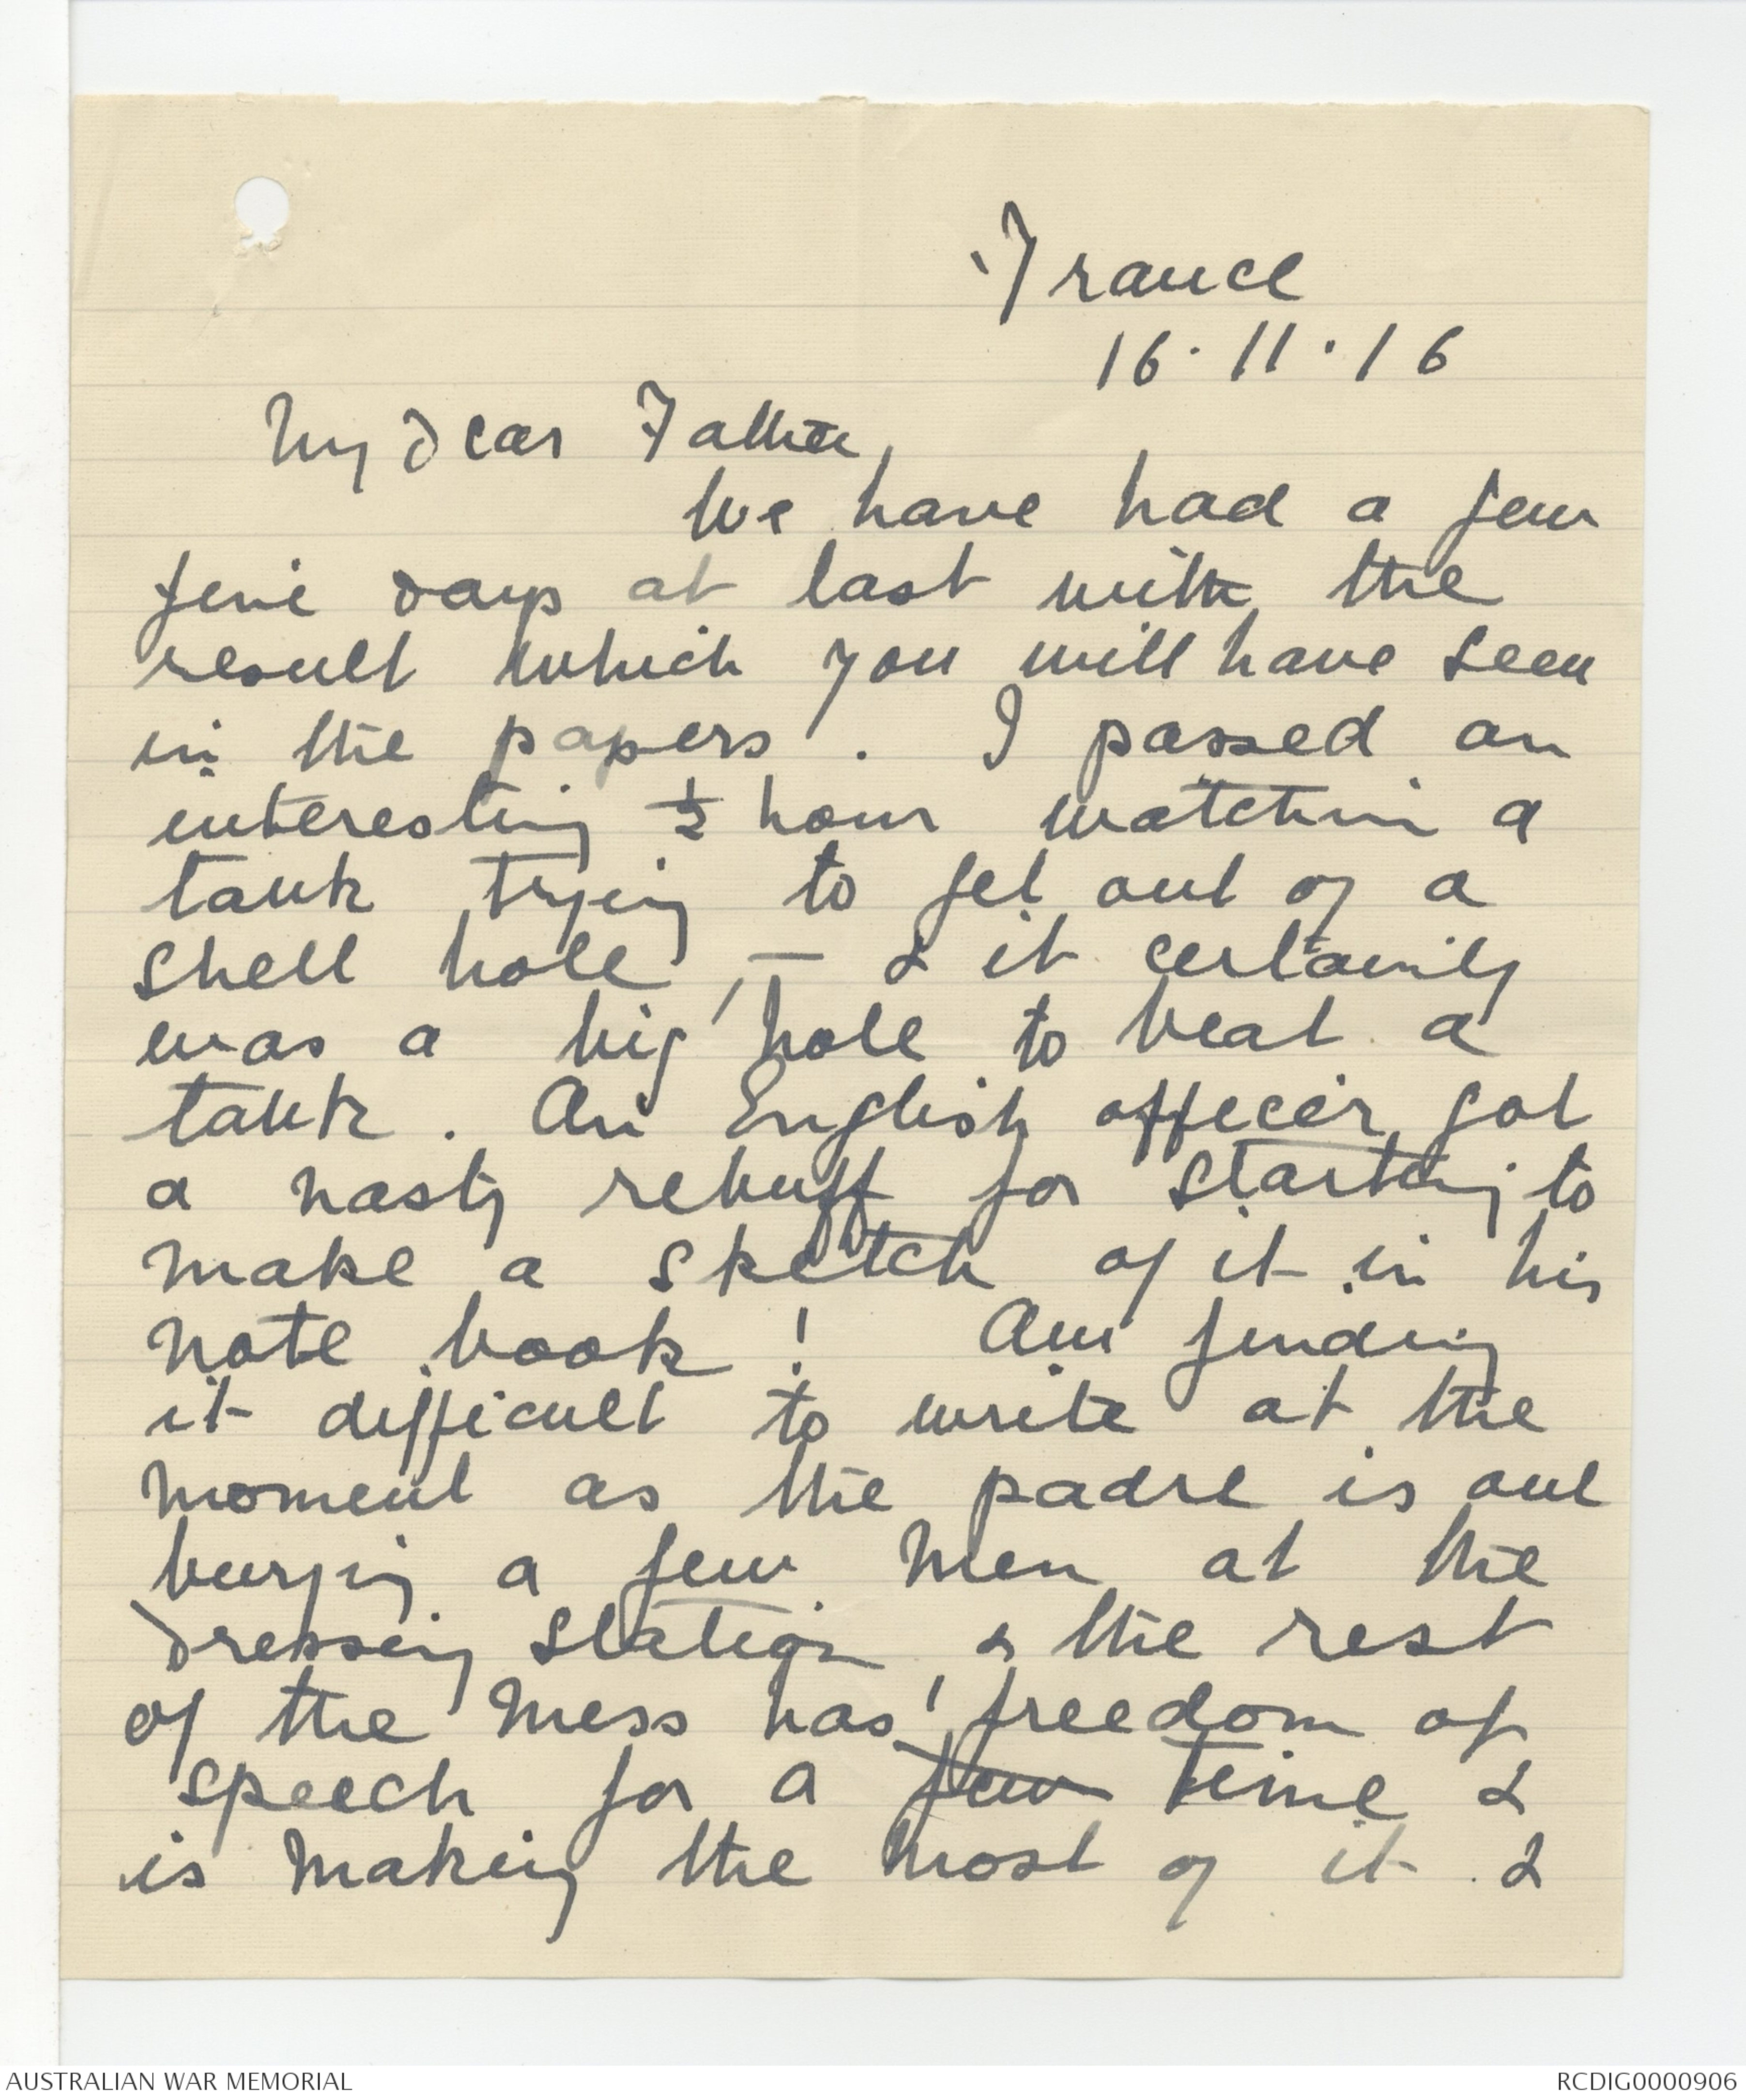 France
16.11.16
My dear Father,
We have had a few
fine days at last with the
result which you will have seen
in the papers. I passed an
interesting ½ hour watchin a
tank trying to get out of a
shell hole, — & it certainly
was a big hole to beat a
tank. An English officer got
a nasty rebuff for starting to
make a sketch of it in his
note book! Am finding
it difficult to write at the
moment as the padre is out
burying a few men at the
dressing station & the rest
of the mess has freedom of
speech for a few time &
is making the most of it &
AUSTRALIAN WAR MEMORIAL
RCDIG0000906